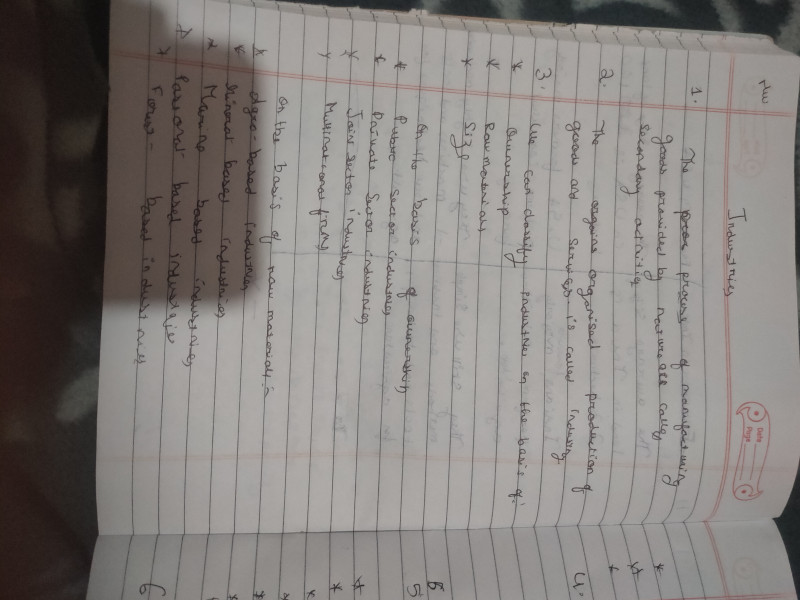 Industries
Date
Page
1. The process of manufacturing
goods provided by nature are called
secondary activities
2. The organised production of
goods and services is called industry
3. We can classify industries on the basis of:
* Ownership
* Raw materials
* Size
On the basis of ownership
* Public Sector industries
* Private Sector industries
* Joint sector industries
* Multinational firms
On the basis of raw materials :-
* Agro-based industries
* Mineral based industries
* Marine based industries
* based industries
* Forest - based industries
4.
5
6